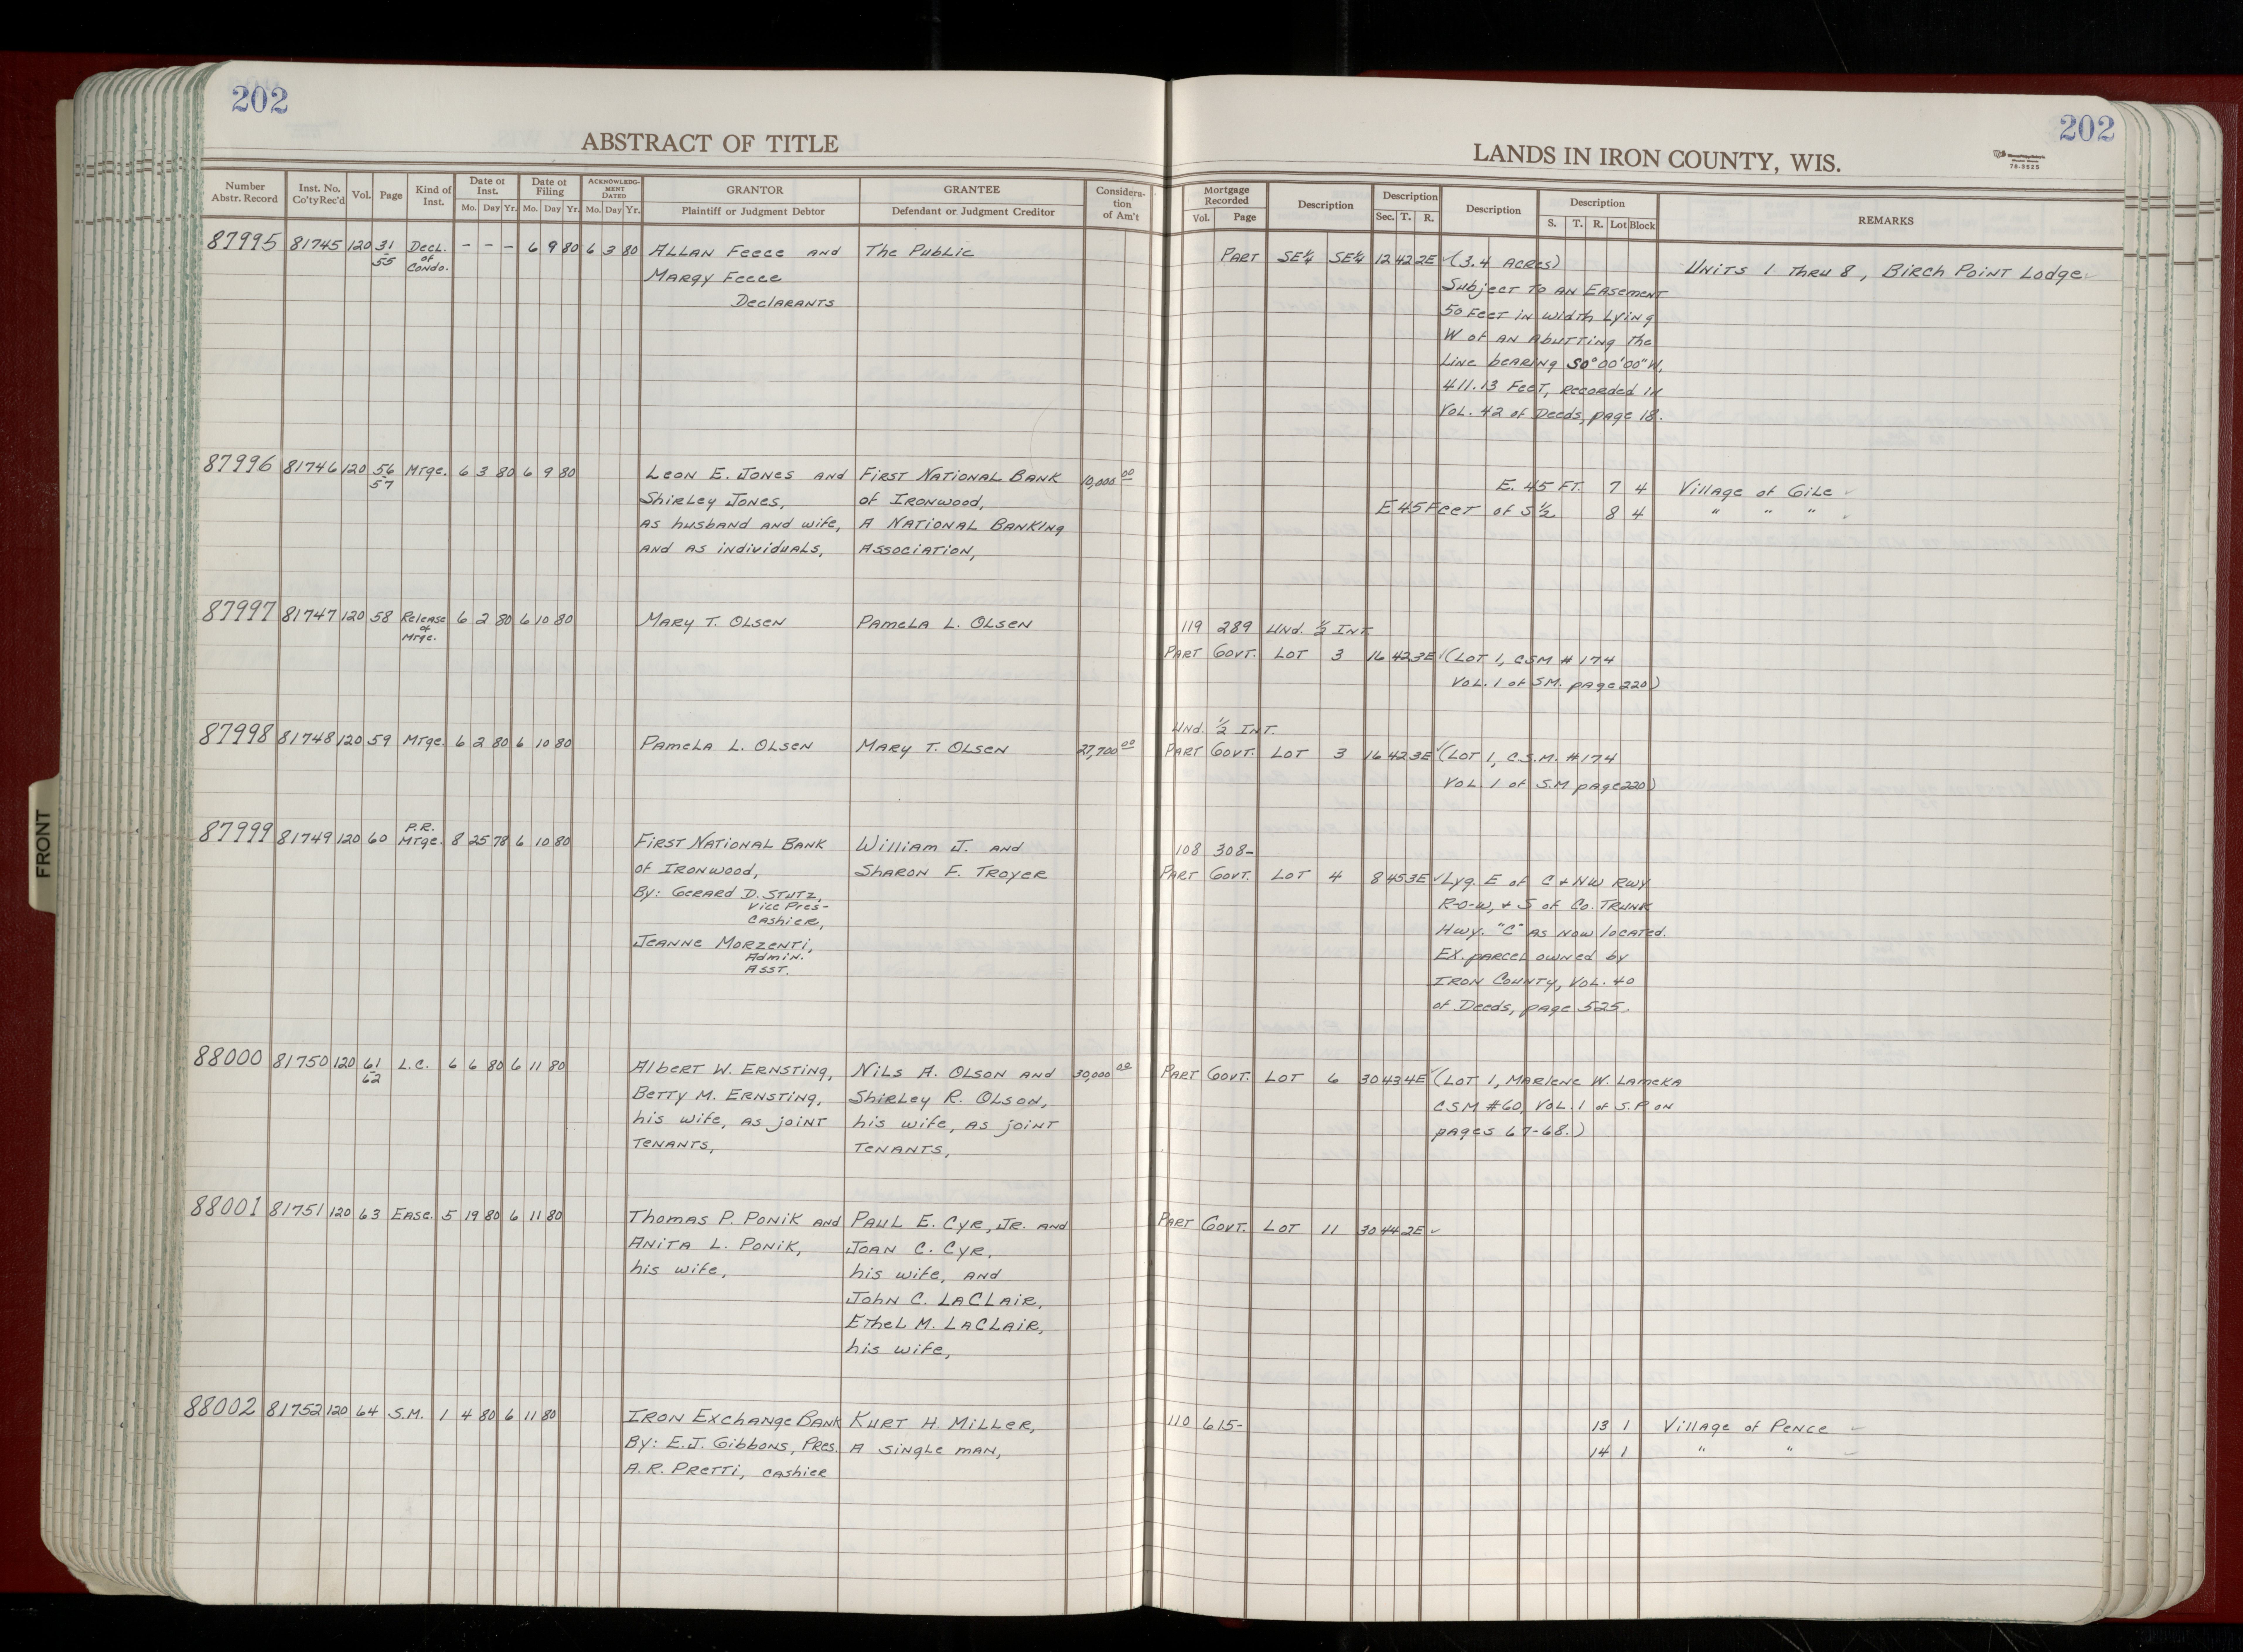 202
ABSTRACT OF TITLE
Number Abstr. Record | Inst. No. Co'ty Rec'd | Vol. | Page | Kind of Inst. | Date of Inst. Mo. Day Yr. | Date of Filing Mo. Day Yr. | ACKNOWLEDGMENT DATED Mo. Day Yr. | GRANTOR Plaintiff or Judgment Debtor | GRANTEE Defendant or Judgment Creditor | Consideration of Am't
87995 81745 120 31 Decl. - - - 6 9 80 6 3 80 Allan Feece and The Public
55 of Condo. Margy Feece
Declarants
87996 81746 120 56 Mtge. 6 3 80 6 9 80 Leon E. Jones and First National Bank 10,000 00
57 Shirley Jones, of Ironwood,
as husband and wife, A National Banking
and as individuals, Association,
87997 81747 120 58 Release 6 2 80 6 10 80 Mary T. Olsen Pamela L. Olsen
of
Mtge.
87998 81748 120 59 Mtge. 6 2 80 6 10 80 Pamela L. Olsen Mary T. Olsen 27,700 00
P.R.
87999 81749 120 60 Mtge. 8 25 78 6 10 80 First National Bank William J. and
of Ironwood, Sharon F. Troyer
By: Gerard D. Stutz,
Vice Pres-
Cashier,
Jeanne Morzenti,
Admin.
Asst.
88000 81750 120 61 L.C. 6 6 80 6 11 80 Albert W. Ernsting, Nils A. Olson and 30,000 00
62 Betty M. Ernsting, Shirley R. Olson,
his wife, as joint his wife, as joint
tenants, tenants,
88001 81751 120 63 Ease. 5 19 80 6 11 80 Thomas P. Ponik and Paul E. Cyr, Jr. and
Anita L. Ponik, Joan C. Cyr,
his wife, his wife, and
John C. LaClair,
Ethel M. LaClair,
his wife,
88002 81752 120 64 S.M. 1 4 80 6 11 80 Iron Exchange Bank Kurt H. Miller,
By: E.J. Gibbons, Pres. A single man,
A.R. Pretti, Cashier
FRONT
202
LANDS IN IRON COUNTY, WIS.
78-3525
Mortgage Recorded Vol. Page | Description | Description Sec. T. R. | Description | Description S. T. R. Lot Block | REMARKS
Part SE¼ SE¼ 12 42 2E ✓ (3.4 Acres) Units 1 thru 8, Birch Point Lodge ✓
Subject to an Easement
50 Feet in width Lying
W of an Abutting the
Line bearing S0°00'00"W,
411.13 Feet, recorded in
Vol. 42 of Deeds, page 18.
E. 45 FT. 7 4 Village of Gile ✓
E 45 Feet of S½ 8 4 " " " ✓
119 289 Und. ½ Int.
Part Govt. Lot 3 16 42 3E ✓ (Lot 1, CSM #174
Vol. 1 of SM. page 220)
Und. ½ Int.
Part Govt. Lot 3 16 42 3E ✓ (Lot 1, C.S.M. #174
Vol. 1 of S.M page 220)
108 308-
Part Govt. Lot 4 8 45 3E ✓ Lyg. E of C + NW Rwy
R-O-W, + S of Co. Trunk
Hwy. "C" as now located.
Ex. parcel owned by
Iron County, Vol. 40
of Deeds, page 525.
Part Govt. Lot 6 30 43 4E ✓ (Lot 1, Marlene W. Lameka
C.S.M #60, Vol. 1 of S.P. on
pages 67-68.)
Part Govt. Lot 11 30 44 2E ✓
110 615- 13 1 Village of Pence ✓
14 1 " " ✓